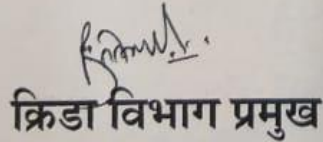 क्रिडा विभाग प्रमुख